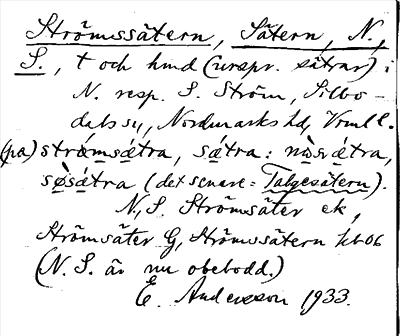 Strömssätern, Sätern, N.,
S., t och hmd (urspr. sätrar) i
N. resp. S. Ström, Silbo-
dals sn, Nordmarks hd, Vrml l.
(på) strømsǽtra, sǽtra: nòsǽtra,
sø̀sǽtra (det senare = Talgesätern).
N., S. Strömsäter ek,
Strömsäter G, Strömssätern kb 06
(N. S. är nu obebodd.)
E. Andersson 1933.